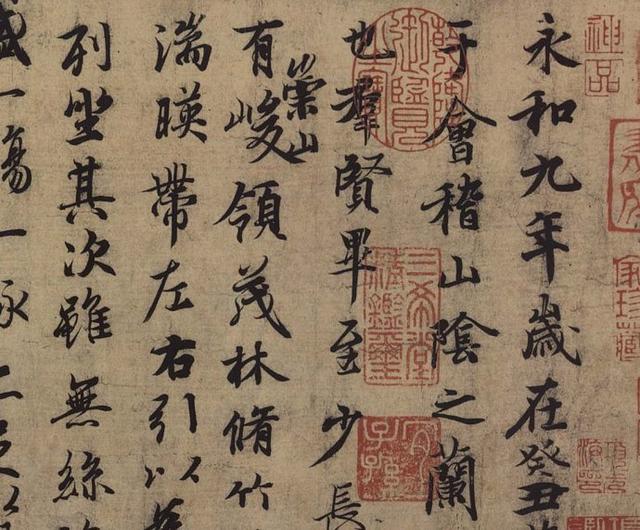 神品
永和九年歲在癸丑
于會稽山陰之蘭
也羣賢畢至少長
有崇山峻領茂林脩竹
湍暎帶左右引以
列坐其次雖無絲
盛一觴一詠
三希堂精鑑璽
宜子孫